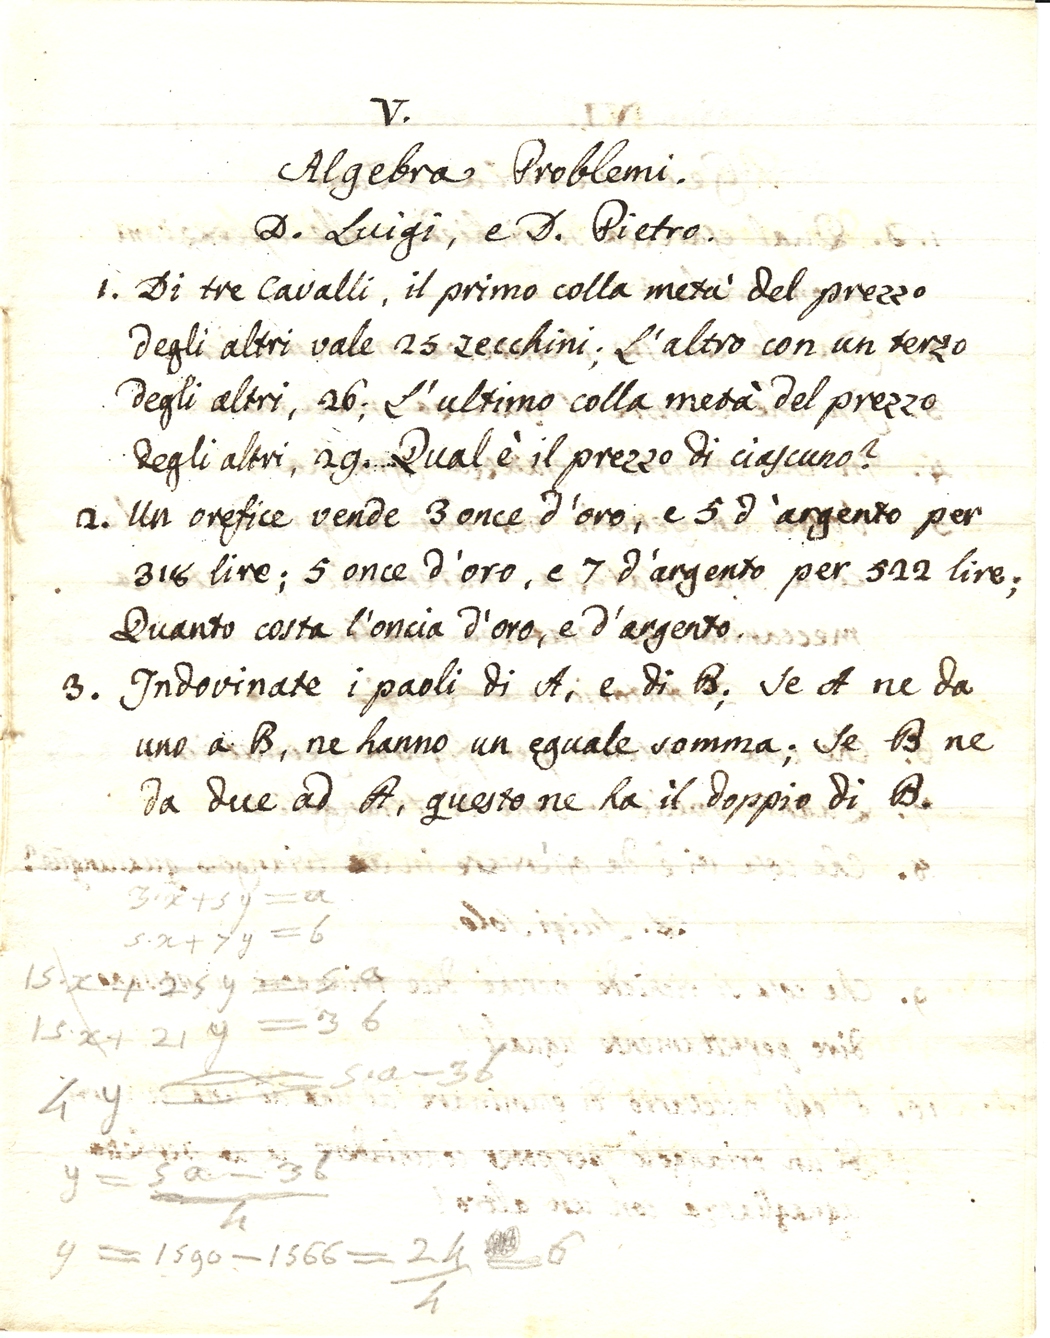 V.
Algebra Problemi.
D. Luigi, e D. Pietro.
1. Di tre Cavalli, il primo colla metà del prezzo
degli altri vale 25 zecchini; L'altro con un terzo
degli altri, 26; L'ultimo colla metà del prezzo
degli altri, 29. Qual è il prezzo di ciascuno?
2. Un orefice vende 3 once d'oro, e 5 d'argento per
318 lire; 5 once d'oro, e 7 d'argento per 522 lire;
Quanto costa l'oncia d'oro, e d'argento.
3. Indovinate i paoli di A, e di B; Se A ne da
uno a B, ne hanno un eguale somma; Se B ne
da due ad A, questo ne ha il doppio di B.
3·x+5y=a
5·x+7y=b
15·x+25y=5a
15·x+21y=3b
4y = 5·a-3b
y = 5a-3b
4
y = 1590-1566=24 = 6
4